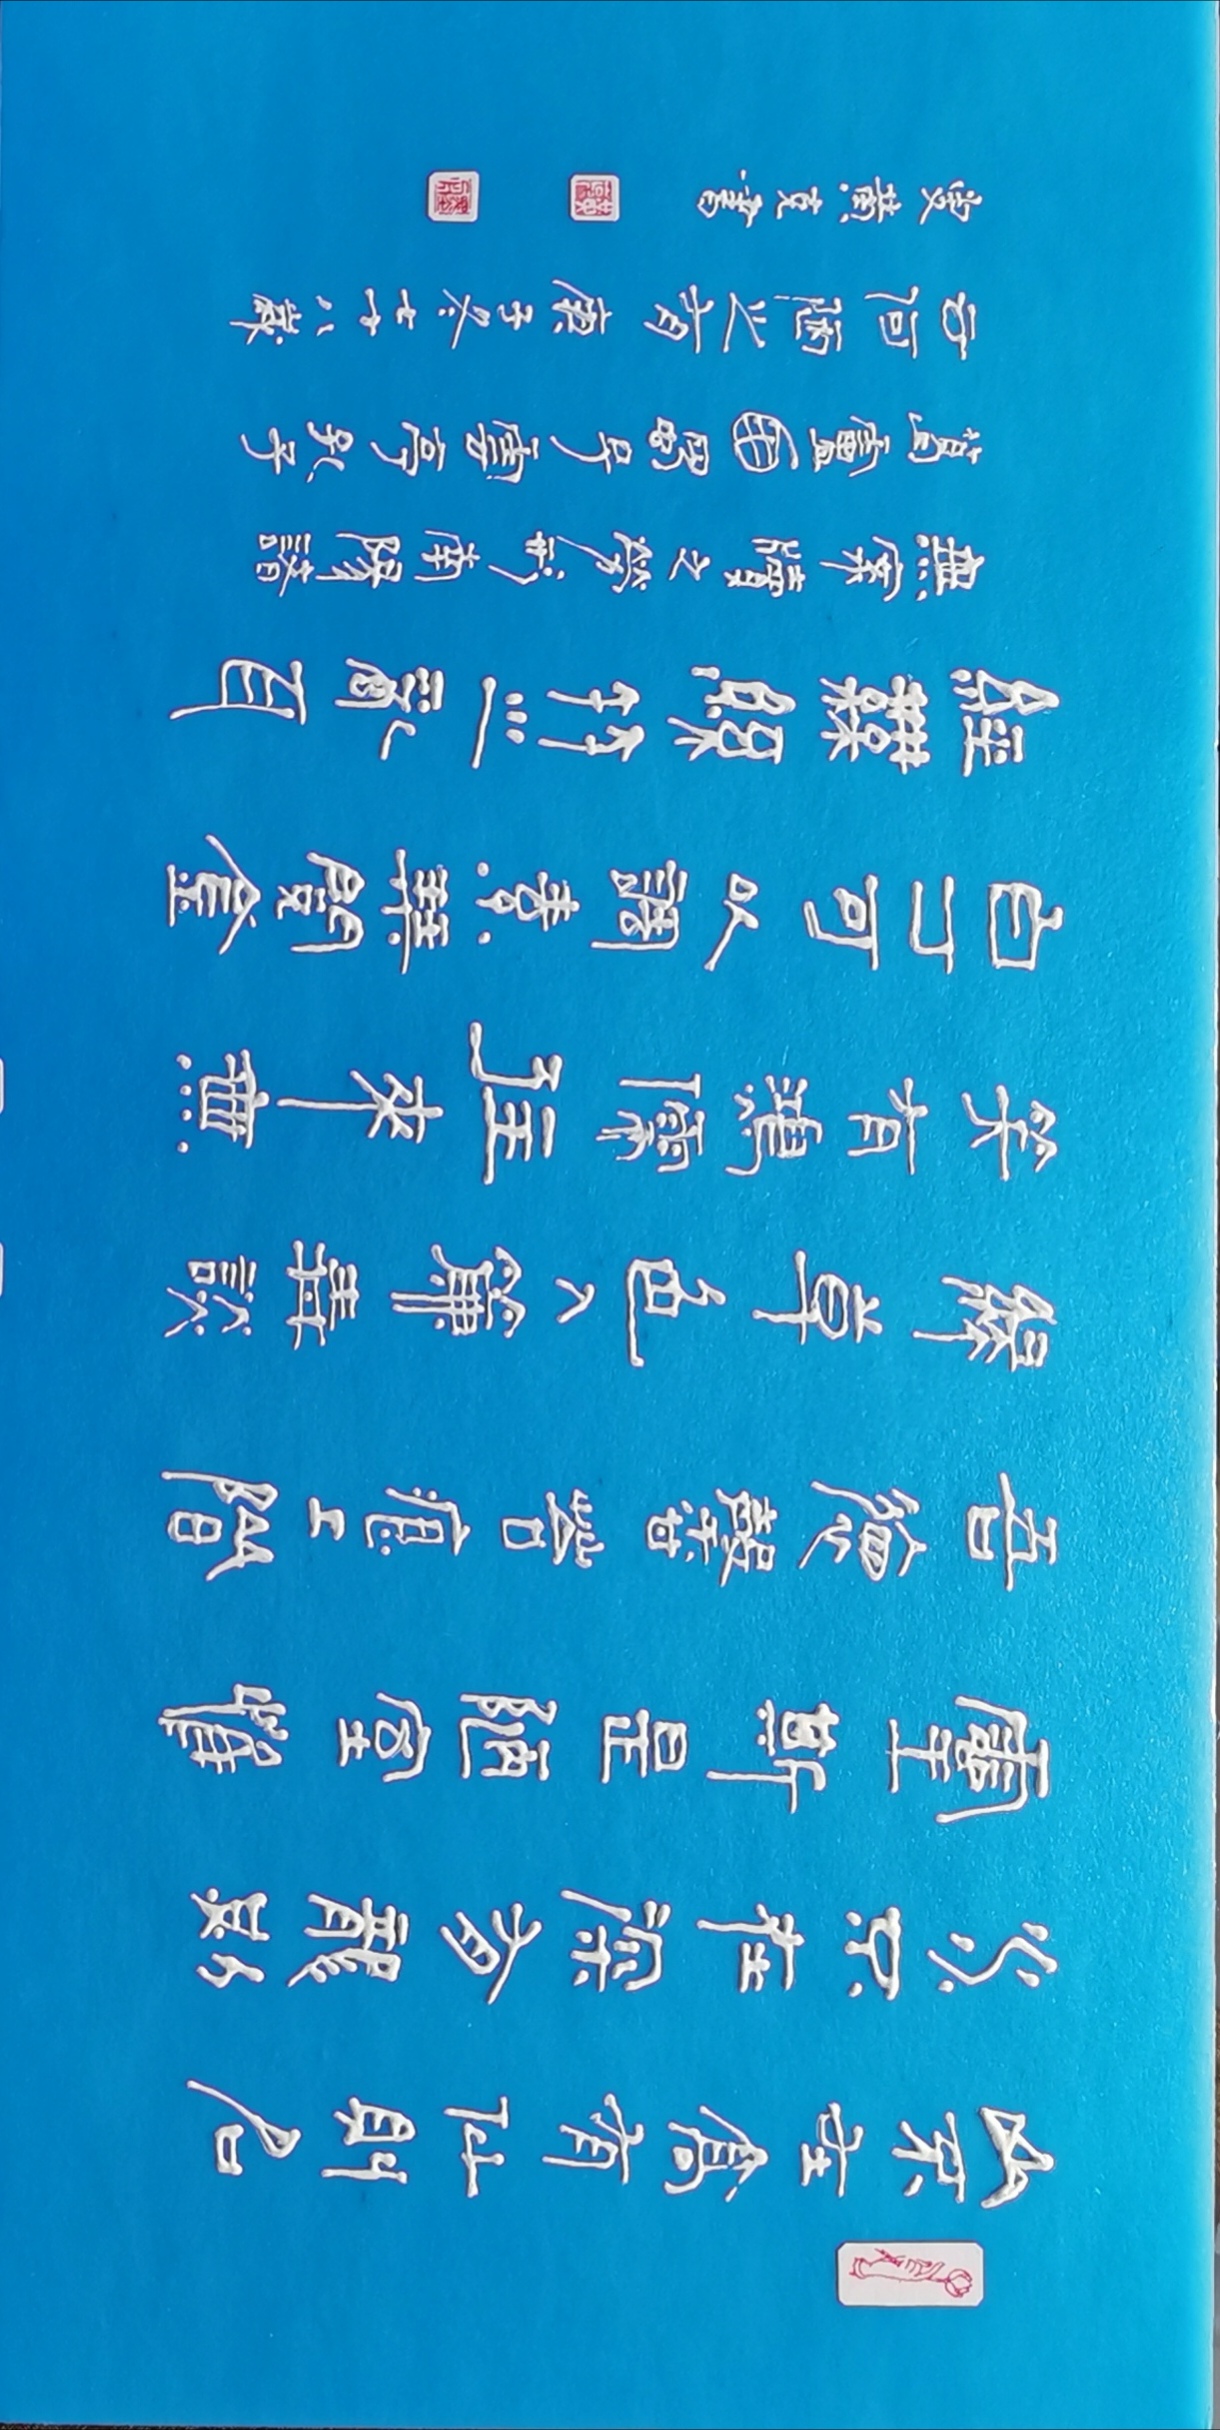 山不在高有仙則名
水不在深有龍則
靈斯是陋室惟
吾德馨苔痕上階
綠草色入簾青談
笑有鴻儒往來無
白丁可以調素琴閱金
經無絲竹之亂耳
無案牘之勞形南陽諸
葛廬西蜀子雲亭孔子
云何陋之有庚子冬七十八歲
叟黄書